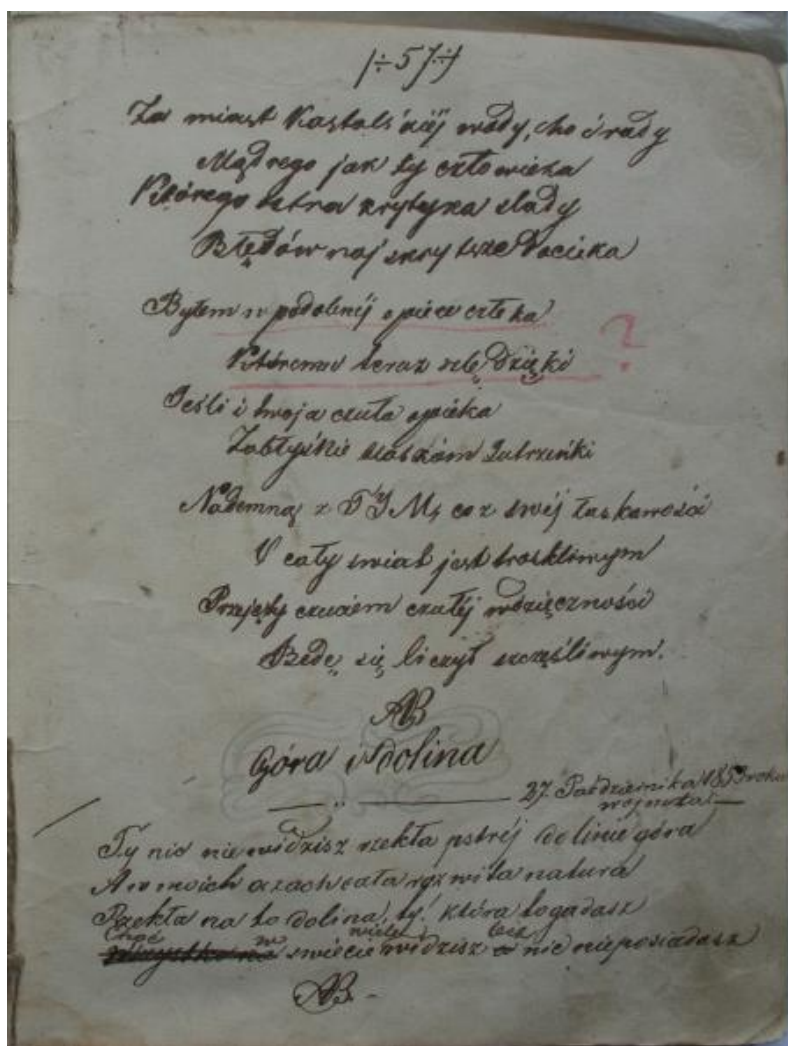 /÷57÷/
Za miast Kastalskiéj wody, cho ć rady
Mądrego jak ty człowieka
Którego ostra krytyka ślady
Błędów najskrytsze docieka
Byłem w podobnéj opiece człeka
Któremu teraz szlę dzięki ?
Jeśli i twoja czuła opieka
Zabłyśnie blaskiem Jutrzenki
Nademną co z swéj łaskawości
O cały świat jest troskliwym
Przejęty czuciem czułéj wdzięczności
Bedę się liczył szczęśliwym.
AB
Góra i Dolina
27. Października 1853 roku
Ty nic nie widzisz rzekła pstréj dolinie góra
A w moich oczach cała rozwita natura
Rzekła na to dolina, ty! która to gadasz
Choć w wiele lecz
świecie widzisz nic nieposiadasz
AB. -